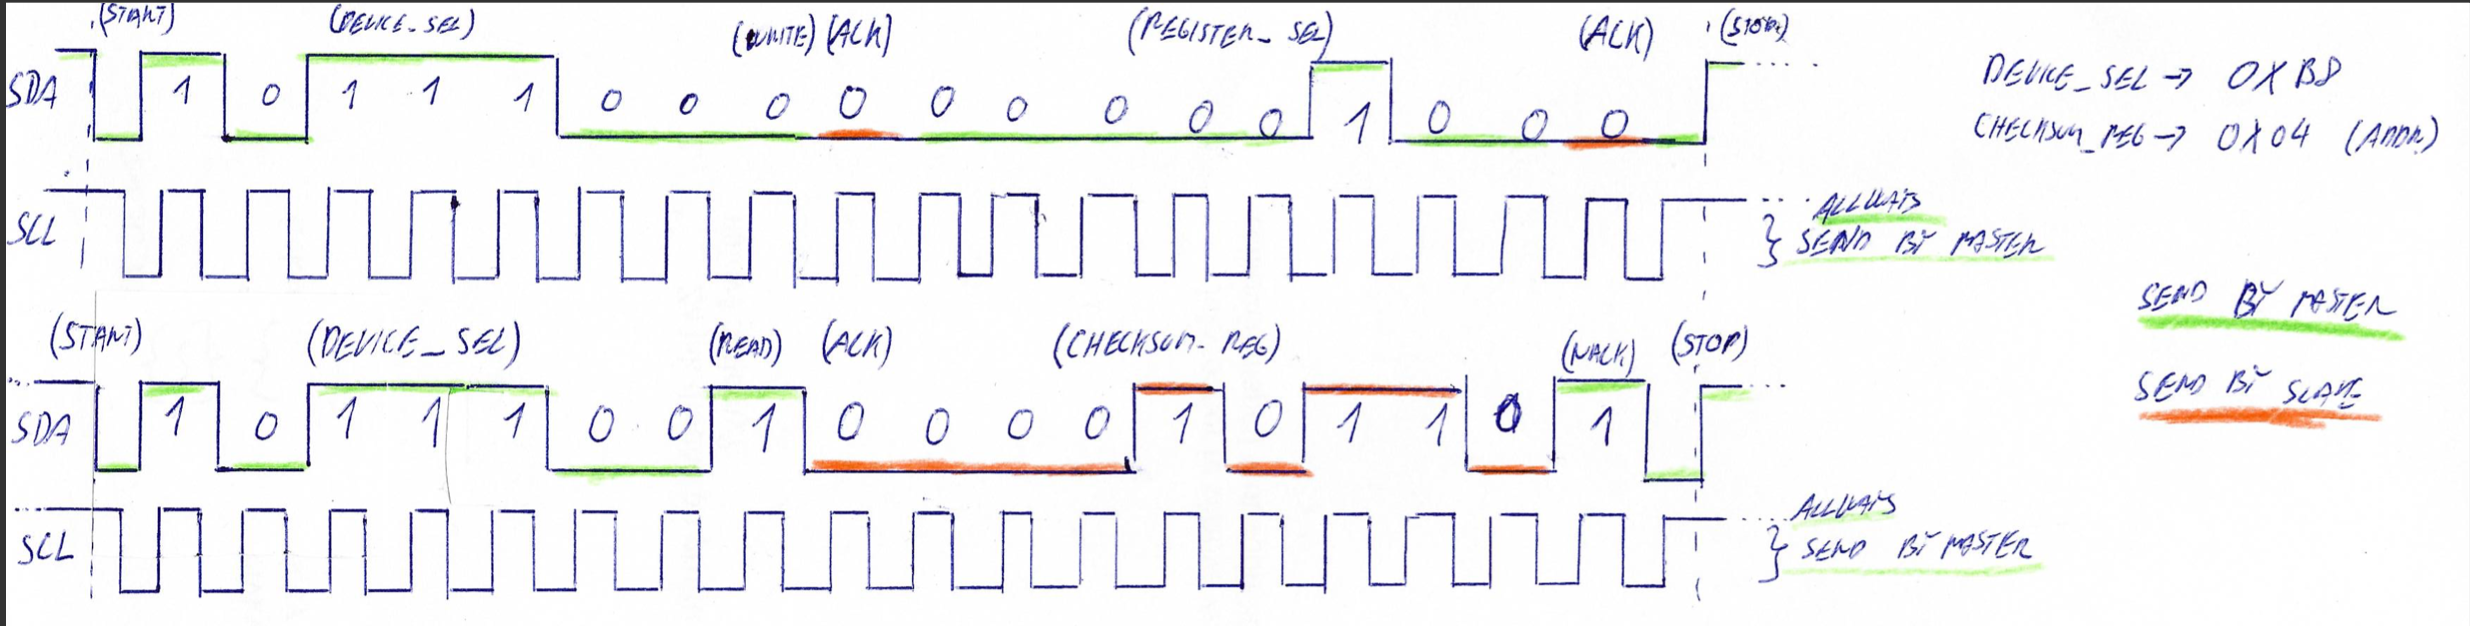 (START) (DEVICE_SEL) (WRITE) (ACK) (REGISTER_SEL) (ACK) (STOP)
SDA 1 0 1 1 1 0 0 0 0 0 0 0 0 0 1 0 0 0
DEVICE_SEL → 0XB8
CHECKSUM_REG → 0X04 (ADDR)
SCL
ALLWAYS
} SEND BY MASTER
SEND BY MASTER
SEND BY SLAVE
(START) (DEVICE_SEL) (READ) (ACK) (CHECKSUM_REG) (NACK) (STOP)
SDA 1 0 1 1 1 0 0 1 0 0 0 0 1 0 1 1 0 1
SCL
ALLWAYS
} SEND BY MASTER